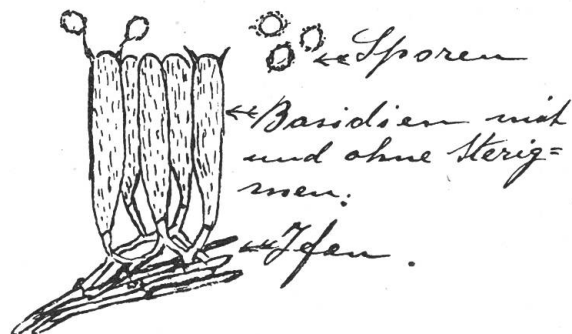 Sporen
Basidien mit
und ohne Sterig=
men.
Ifen.